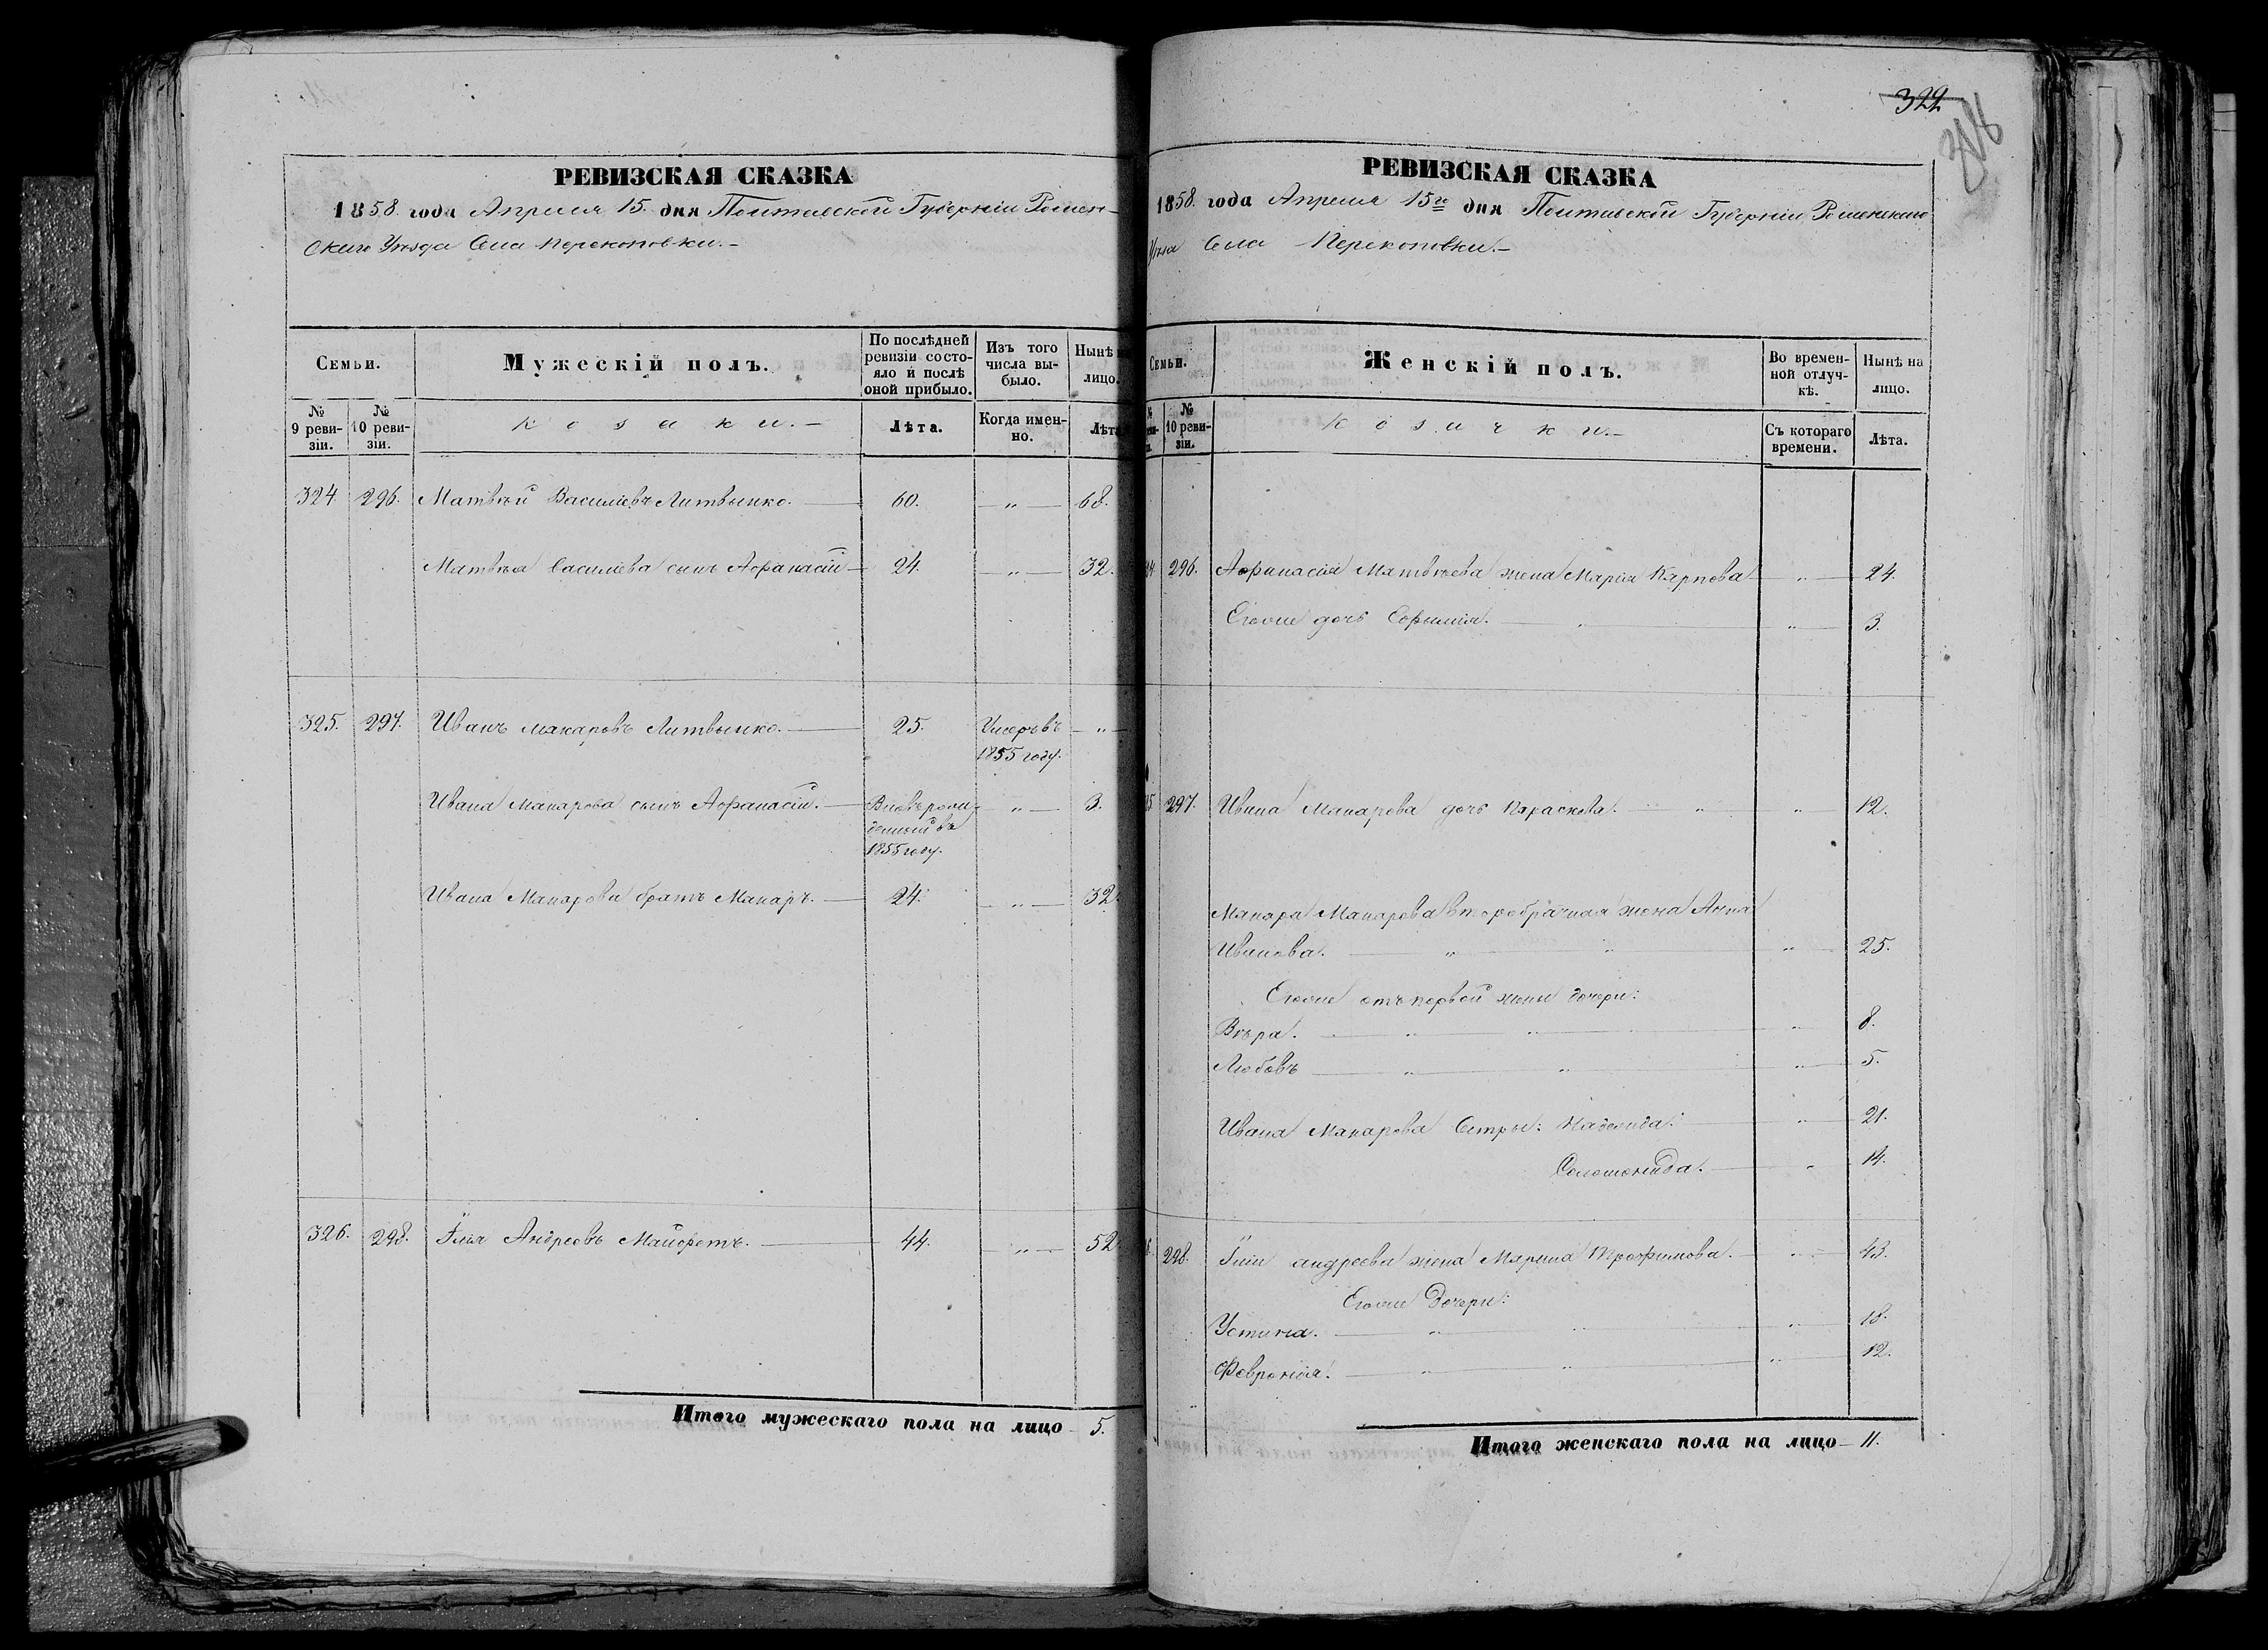 РЕВИЗСКАЯ СКАЗКА
1858. года Апреля 15. дня Полтавской Губерніи Ромен-
скаго Уезда Села Перекоповки.-
Семьи.
Мужескій полъ.
По послѣдней ревизіи состо-яло и послѣ оной прибыло.
Изъ того числа вы-было.
Нынѣ
лицо.
№ 9 реви-зіи.
№ 10 реви-зіи.
Козаки.-
Лѣта.
Когда имен-но.
Лѣта
324 296. Матвѣй Василіевъ Литвынко. 60. „ 68.
Матвѣя Василіева сынъ Афанасій 24. „ 32.
325. 297. Иванъ Макаровъ Литвынко. 25. Умеръ въ „
1855 году.
Ивана Макарова сынъ Афанасій. Вновърож- „ 3.
денный въ
1855 году.
Ивана Макарова братъ Макаръ. 24. „ 32.
326. 298. Илія Андреевъ Майфетъ. 44. „ 52
Итого мужескаго пола на лицо 5.
322
318
РЕВИЗСКАЯ СКАЗКА
1858. года Апреля 15го дня Полтавской Губерніи Роменскаго
Села Перекоповки.-
Семьи.
Женскій полъ.
Во времен-ной отлуч-кѣ.
Нынѣ на лицо.
№ 10 реви-зіи.
Козачки.-
Съ котораго времени.
Лѣта.
296. Афанасія Матвѣева жена Марія Карпова „ 24.
Егоже дочь Софимія. „ „ 3.
297. Ивана Макарова дочь Параскева. „ „ 12.
Макара Макарова второбрачная жена Анна
Иванова. „ „ „ 25.
Егоже отъ первой жены дочери:
Вѣра. „ „ „ „ 8.
Любовь „ „ „ 5.
Ивана Макарова Сестры: Надежда. „ 21.
Соломонида. „ 14.
298. Иліи Андреева жена Марина Трофимова. „ 43.
Егоже Дочери:
Устина. „ „ „ 18.
Февронія. „ „ „ 12.
Итого женскаго пола на лицо 11.